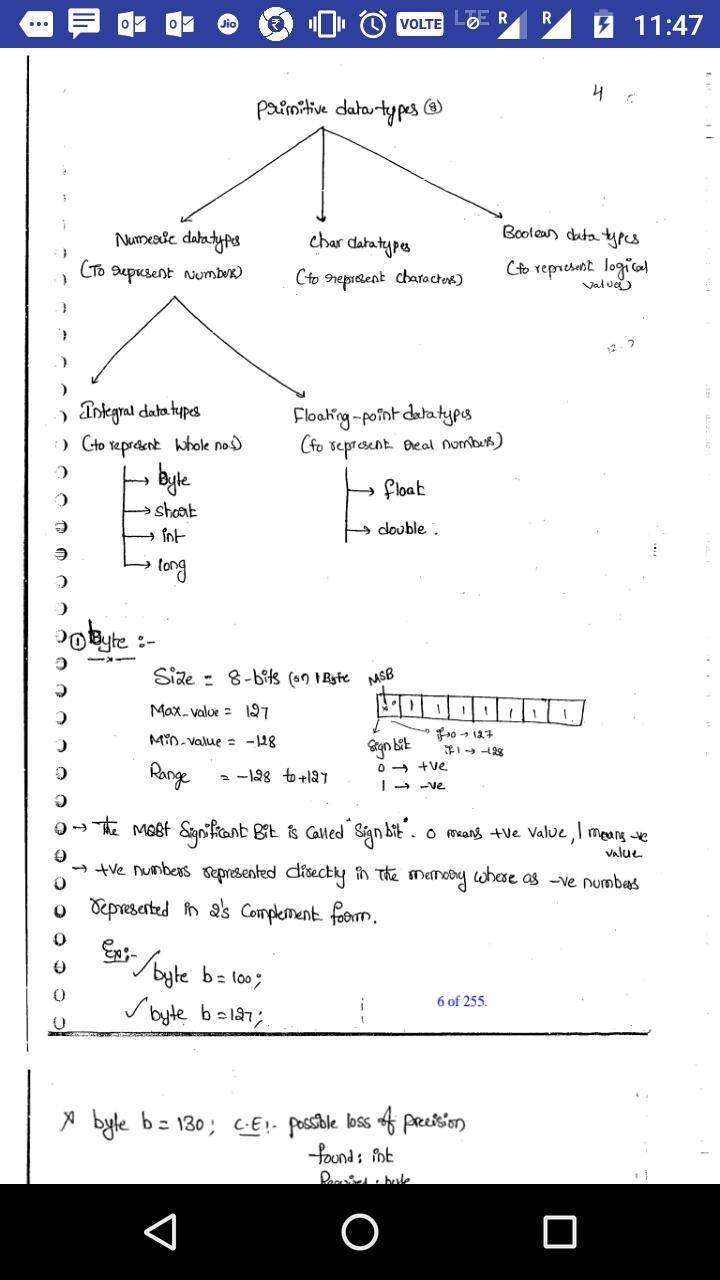 VOLTE LTE R R 11:47
4
Primitive data-types (8)
Numeric datatypes
(To represent numbers)
Char datatypes
(to represent characters)
Boolean data types
(to represent logical
values)
Integral datatypes
(to represent whole no.s)
byte
short
int
long
Floating-point datatypes
(to represent real numbers)
float
double.
① Byte :-
Size = 8-bits (or) 1 Byte
Max-value = 127
Min-value = -128
Range = -128 to +127
MSB
1 1 1 1 1 1 1
Sign bit
if 0 → 127
if 1 → -128
0 → +ve
1 → -ve
→ The Most Significant Bit is called "Sign bit". 0 means +ve value, 1 means -ve
value
→ +ve numbers represented directly in the memory where as -ve numbers
represented in 2's complement form.
Ex:-
✓ byte b = 100;
✓ byte b = 127;
6 of 255.
X byte b = 130; C.E!- possible loss of precision
found: int
Required: byte